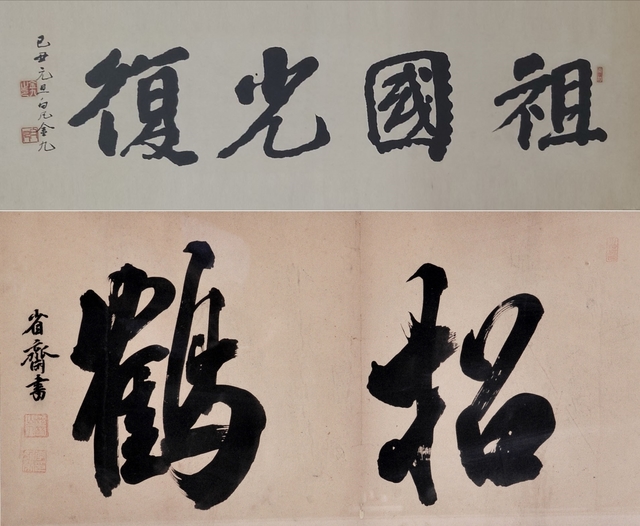 祖國光復
己丑元旦白凡金九
招鶴
省齋書